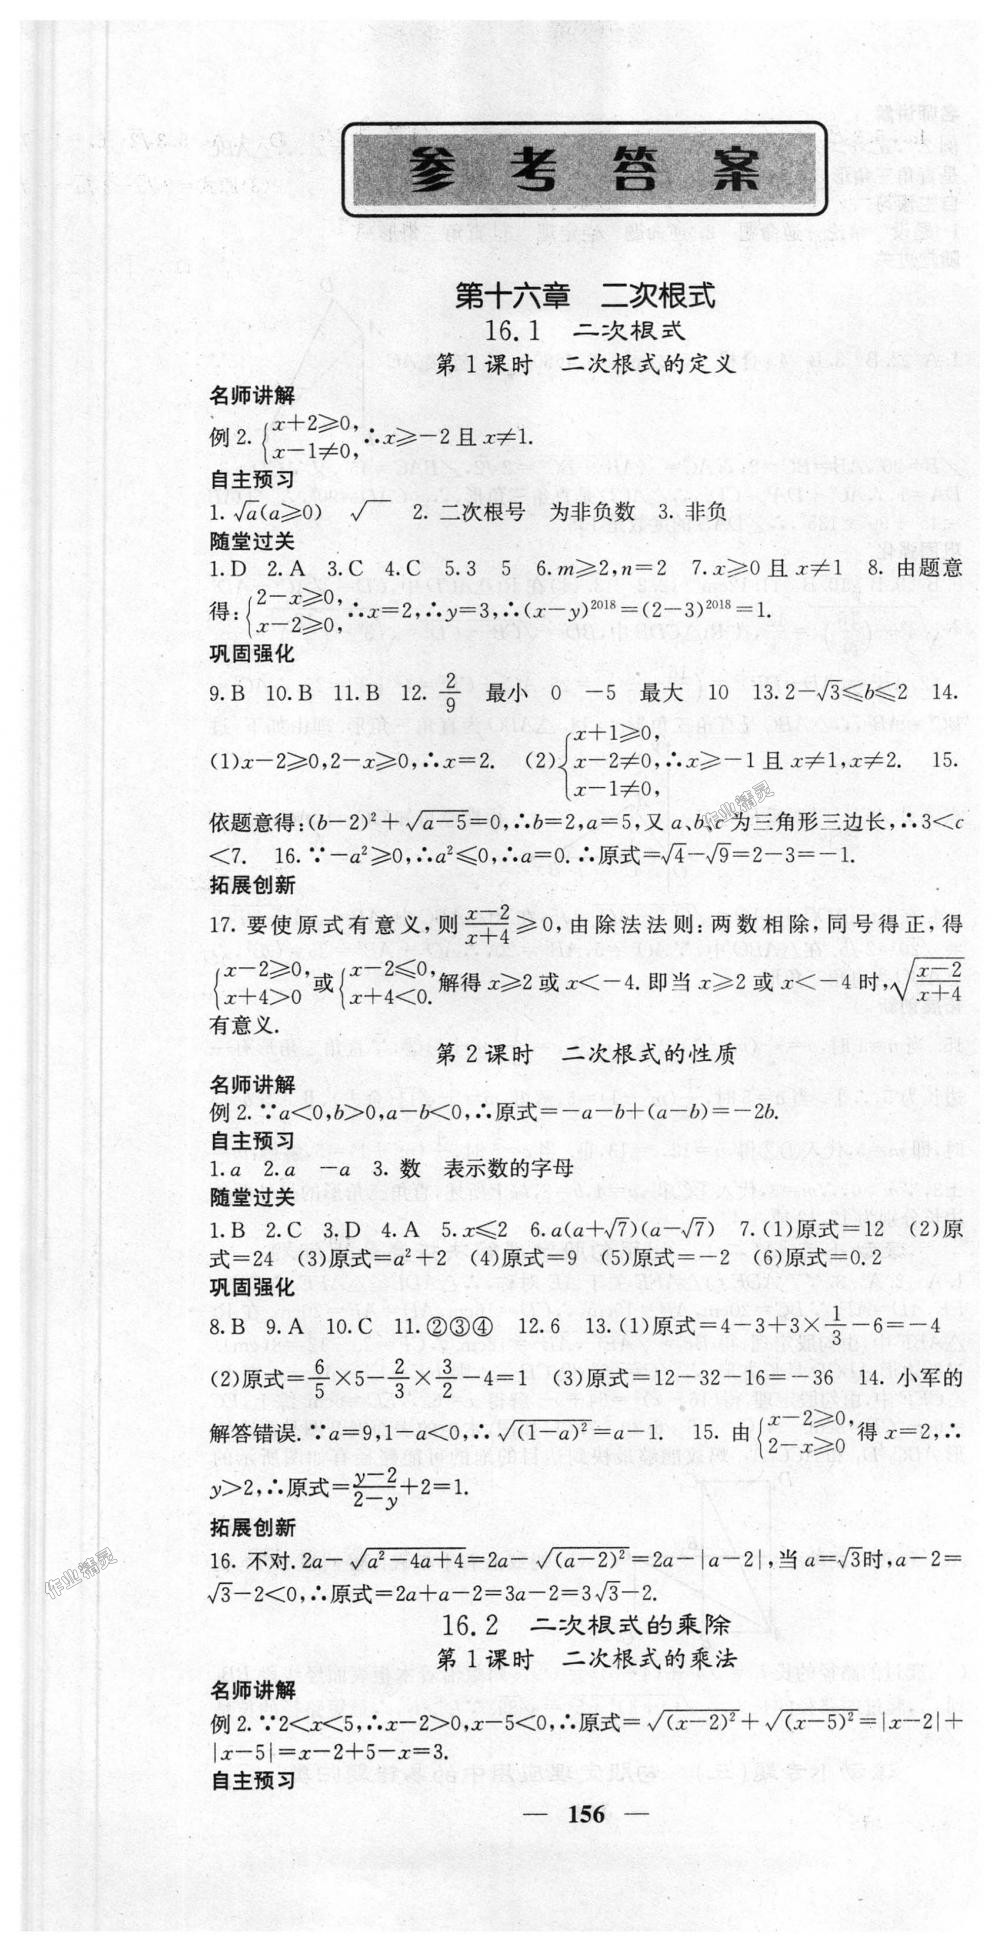 参考答案
第十六章 二次根式
16.1 二次根式
第1课时 二次根式的定义
名师讲解
例2.{x+2≥0, x-1≠0, ∴x≥-2且x≠1.
自主预习
1.√a(a≥0) √ 2.二次根号 为非负数 3.非负
随堂过关
1.D 2.A 3.C 4.C 5.3 5 6.m≥2,n=2 7.x≥0且x≠1 8.由题意
得:{2-x≥0, x-2≥0, ∴x=2,∴y=3,∴(x-y)²⁰¹⁸=(2-3)²⁰¹⁸=1.
巩固强化
9.B 10.B 11.B 12.2/9 最小 0 -5 最大 10 13.2-√3≤b≤2 14.
(1)x-2≥0,2-x≥0,∴x=2. (2){x+1≥0, x-2≠0, x-1≠0, ∴x≥-1且x≠1,x≠2. 15.
依题意得:(b-2)²+√(a-5)=0,∴b=2,a=5,又a、b、c为三角形三边长,∴3<c
<7. 16.∵-a²≥0,∴a²≤0,∴a=0.∴原式=√4-√9=2-3=-1.
拓展创新
17.要使原式有意义,则(x-2)/(x+4)≥0,由除法法则:两数相除,同号得正,得
{x-2≥0, x+4>0 或{x-2≤0, x+4<0. 解得x≥2或x<-4.即当x≥2或x<-4时,√((x-2)/(x+4))
有意义.
第2课时 二次根式的性质
名师讲解
例2.∵a<0,b>0,a-b<0,∴原式=-a-b+(a-b)=-2b.
自主预习
1.a 2.a -a 3.数 表示数的字母
随堂过关
1.B 2.C 3.D 4.A 5.x≤2 6.a(a+√7)(a-√7) 7.(1)原式=12 (2)原
式=24 (3)原式=a²+2 (4)原式=9 (5)原式=-2 (6)原式=0.2
巩固强化
8.B 9.A 10.C 11.②③④ 12.6 13.(1)原式=4-3+3×1/3-6=-4
(2)原式=6/5×5-2/3×3/2-4=1 (3)原式=12-32-16=-36 14.小军的
解答错误.∵a=9,1-a<0,∴√((1-a)²)=a-1. 15.由{x-2≥0, 2-x≥0 得x=2,∴
y>2,∴原式=(y-2)/(2-y)+2=1.
拓展创新
16.不对.2a-√(a²-4a+4)=2a-√((a-2)²)=2a-|a-2|,当a=√3时,a-2=
√3-2<0,∴原式=2a+a-2=3a-2=3√3-2.
16.2 二次根式的乘除
第1课时 二次根式的乘法
名师讲解
例2.∵2<x<5,∴x-2>0,x-5<0,∴原式=√((x-2)²)+√((x-5)²)=|x-2|+
|x-5|=x-2+5-x=3.
自主预习
— 156 —
作业精灵
作业精灵